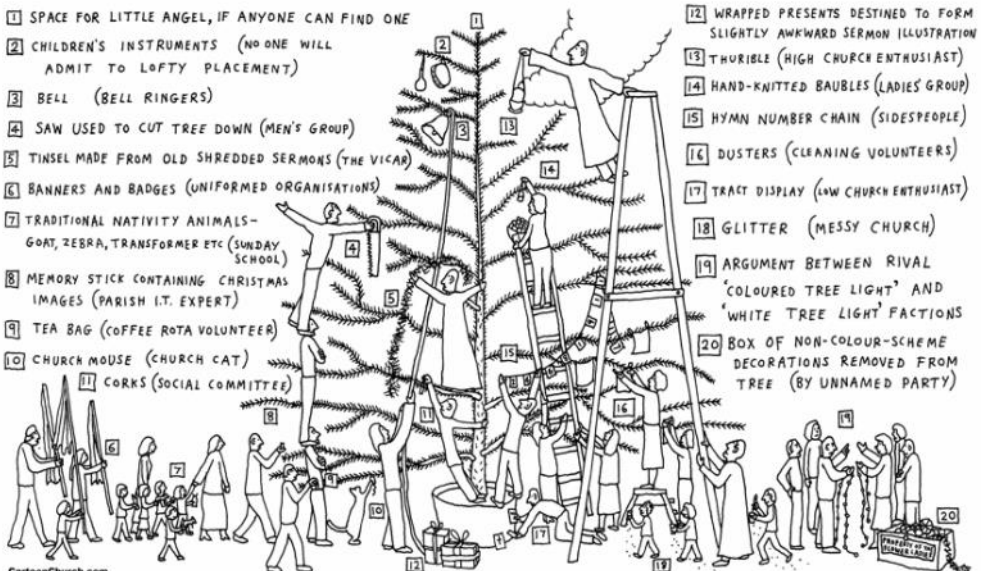 1 SPACE FOR LITTLE ANGEL, IF ANYONE CAN FIND ONE
2 CHILDREN'S INSTRUMENTS (NO ONE WILL
ADMIT TO LOFTY PLACEMENT)
3 BELL (BELL RINGERS)
4 SAW USED TO CUT TREE DOWN (MEN'S GROUP)
5 TINSEL MADE FROM OLD SHREDDED SERMONS (THE VICAR)
6 BANNERS AND BADGES (UNIFORMED ORGANISATIONS)
7 TRADITIONAL NATIVITY ANIMALS-
GOAT, ZEBRA, TRANSFORMER ETC (SUNDAY
SCHOOL)
8 MEMORY STICK CONTAINING CHRISTMAS
IMAGES (PARISH I.T. EXPERT)
9 TEA BAG (COFFEE ROTA VOLUNTEER)
10 CHURCH MOUSE (CHURCH CAT)
11 CORKS (SOCIAL COMMITTEE)
12 WRAPPED PRESENTS DESTINED TO FORM
SLIGHTLY AWKWARD SERMON ILLUSTRATION
13 THURIBLE (HIGH CHURCH ENTHUSIAST)
14 HAND-KNITTED BAUBLES (LADIES' GROUP)
15 HYMN NUMBER CHAIN (SIDESPEOPLE)
16 DUSTERS (CLEANING VOLUNTEERS)
17 TRACT DISPLAY (LOW CHURCH ENTHUSIAST)
18 GLITTER (MESSY CHURCH)
19 ARGUMENT BETWEEN RIVAL
'COLOURED TREE LIGHT' AND
'WHITE TREE LIGHT' FACTIONS
20 BOX OF NON-COLOUR-SCHEME
DECORATIONS REMOVED FROM
TREE (BY UNNAMED PARTY)
1
2
3
13
14
4
5
15
8
11
16
6
7
9
10
19
17
12
18
20
PROPERTY OF THE
FLOWER LADIES
CartoonChurch.com